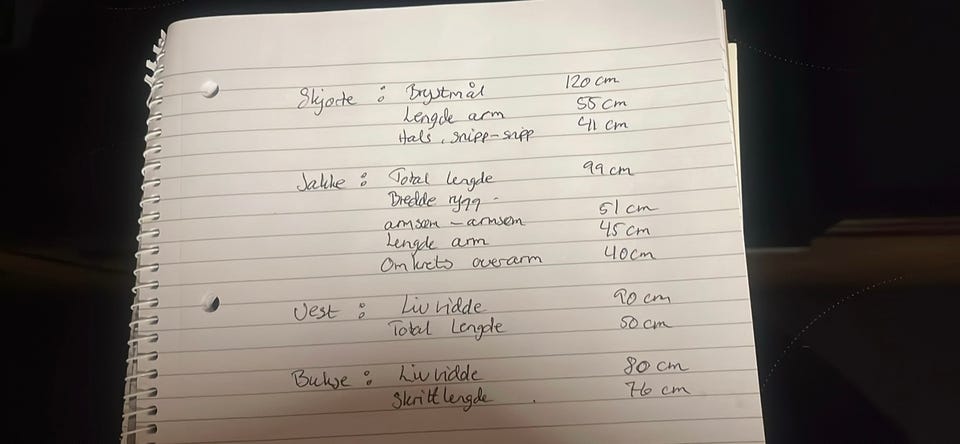 Skjorte : Brystmål 120 cm
Lengde arm 55 cm
Hals, snipp-snipp 41 cm
Jakke : Total lengde 99 cm
Bredde rygg -
armsøm - armsøm 51 cm
Lengde arm 45 cm
Omkrets overarm 40 cm
Vest : Livvidde 90 cm
Total Lengde 50 cm
Bukse : Livvidde 80 cm
Skrittlengde 76 cm